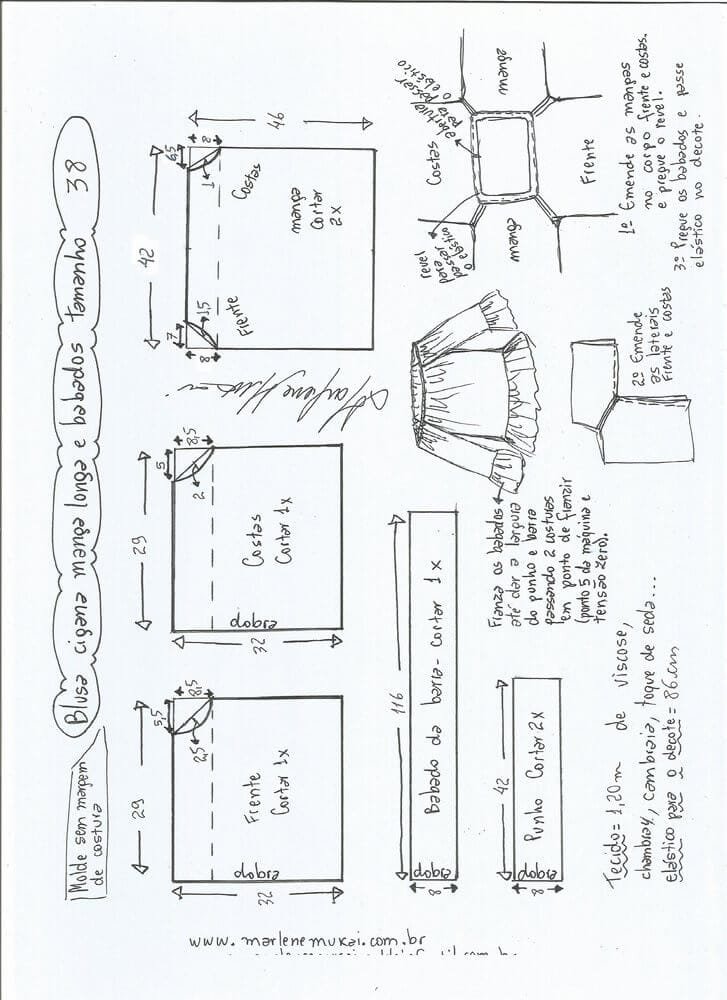 Molde sem margem
de costura
Blusa cigana manga longa e babados tamanho 38
29
5,5
8,5
2,5
Frente
Cortar 1x
dobra
32
29
5
8,5
2
Costas
Cortar 1x
dobra
32
42
7
8
1,5
Frente
6,5
8
1
Costas
manga
cortar
2x
46
Marlene Mukai
116
Babado da barra - cortar 1x
dobra
8
42
Punho Cortar 2x
dobra
8
Franza os babados
até dar a largura
do punho e barra
passando 2 costuras
em ponto de franzir
(ponto 5 da maquina e
tensão zero).
revel
para
passar
o elástico
abertura
para
passar
o elástico
manga
Costas
Frente
manga
1º Emende as mangas
no corpo frente e costas.
e pregue o revel.
3º Pregue os babados e passe
elástico no decote.
2º Emende
as laterais
Frente e costas
Tecido = 1,20m de viscose,
chambray, cambraia, toque de seda...
elástico para o decote = 86cm
www.marlenemukai.com.br